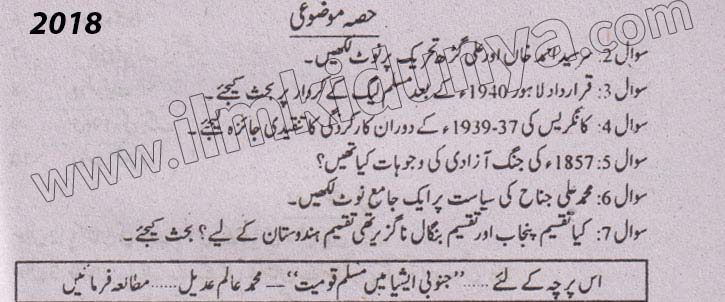 2018
حصہ موضوعی
سوال 2: سرسید احمد خاں اور علی گڑھ تحریک پر نوٹ لکھیں۔
سوال 3: قرارداد لاہور 1940ء کے بعد مسلم لیگ کے کردار پر بحث کیجئے۔
سوال 4: کانگریس کی 37-1939ء کے دوران کارکردگی کا تنقیدی جائزہ لیجئے۔
سوال 5: 1857ء کی جنگ آزادی کی وجوہات کیا تھیں؟
سوال 6: محمد علی جناح کی سیاست پر ایک جامع نوٹ لکھیں۔
سوال 7: کیا تقسیم پنجاب اور تقسیم بنگال ناگزیر تھی تقسیم ہندوستان کے لیے؟ بحث کیجئے۔
اس پرچہ کے لئے ..... "جنوبی ایشیا میں مسلم قومیت" — محمد عالم عدیل ..... مطالعہ فرمائیں
www.ilmkidunya.com